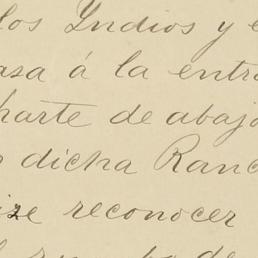 los Indios y
asa á la entr
parte de abajo
dicha Ranc
ize reconocer